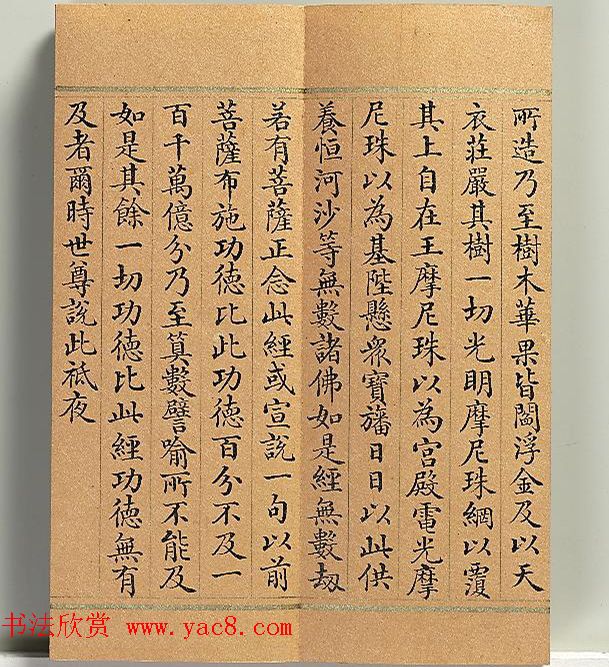 所造乃至樹木華果皆閻浮金及以天
衣莊嚴其樹一切光明摩尼珠網以覆
其上自在王摩尼珠以為宮殿雷光摩
尼珠以為基陛懸眾寶旛日日以此供
養恒河沙等無數諸佛如是經無數劫
若有菩薩正念此經或宣說一句以前
菩薩布施功德比此功德百分不及一
百千萬億分乃至算數譬喻所不能及
如是其餘一切功德比此經功德無有
及者爾時世尊說此祗夜
书法欣赏 www.yac8.com